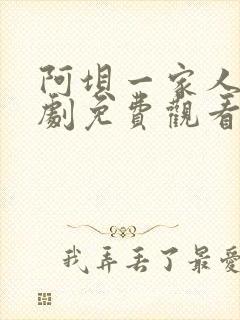 阿垻一家人
劇免費觀看
我弄丟了最愛